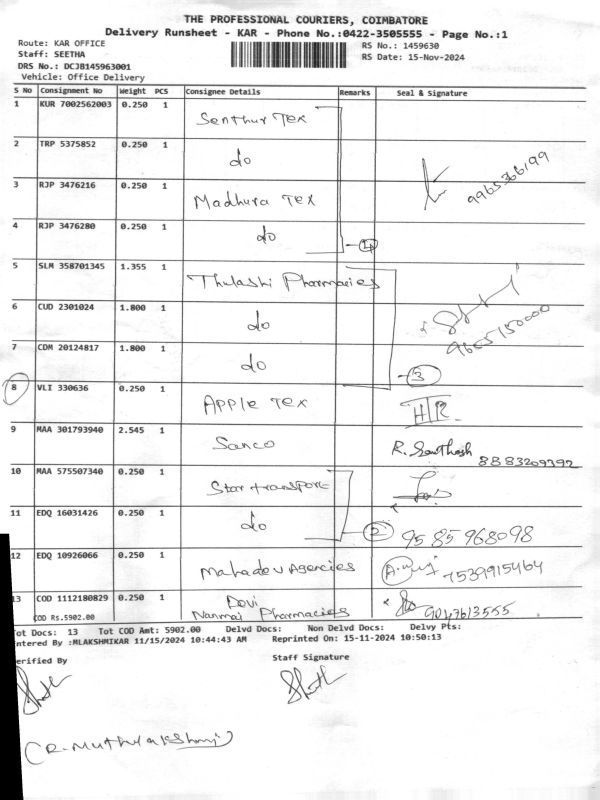 THE PROFESSIONAL COURIERS, COIMBATORE
Delivery Runsheet - KAR - Phone No.:0422-3505555 - Page No.:1
Route: KAR OFFICE
RS No.: 1459630
Staff: SEETHA
RS Date: 15-Nov-2024
DRS No.: DCJB145963001
Vehicle: Office Delivery
S No Consignment No Weight PCS Consignee Details Remarks Seal & Signature
1 KUR 7002562003 0.250 1 Senthur Tex
2 TRP 5375852 0.250 1 do
3 RJP 3476216 0.250 1 Madhura Tex 9965366199
4 RJP 3476280 0.250 1 do 4
5 SLM 358701345 1.355 1 Thulashi Pharmacies
6 CUD 2301024 1.800 1 do
7 CDM 20124817 1.800 1 do 3
8 VLI 330636 0.250 1 Apple Tex
9 MAA 301793940 2.545 1 Sanco R. Santhosh 8883209392
10 MAA 575507340 0.250 1 Star transport
11 EDQ 16031426 0.250 1 do 2 9585968098
12 EDQ 10926066 0.250 1 Mahadev Agencies 7539915464
13 COD 1112180829 0.250 1 Devi
COD Rs.5902.00 Nanmai Pharmacies 9047613555
Tot Docs: 13 Tot COD Amt: 5902.00 Delvd Docs: Non Delvd Docs: Delvy Pts:
Entered By :MLAKSHMIKAR 11/15/2024 10:44:43 AM Reprinted On: 15-11-2024 10:50:13
Verified By
Staff Signature
(R. Muthulakshmi)